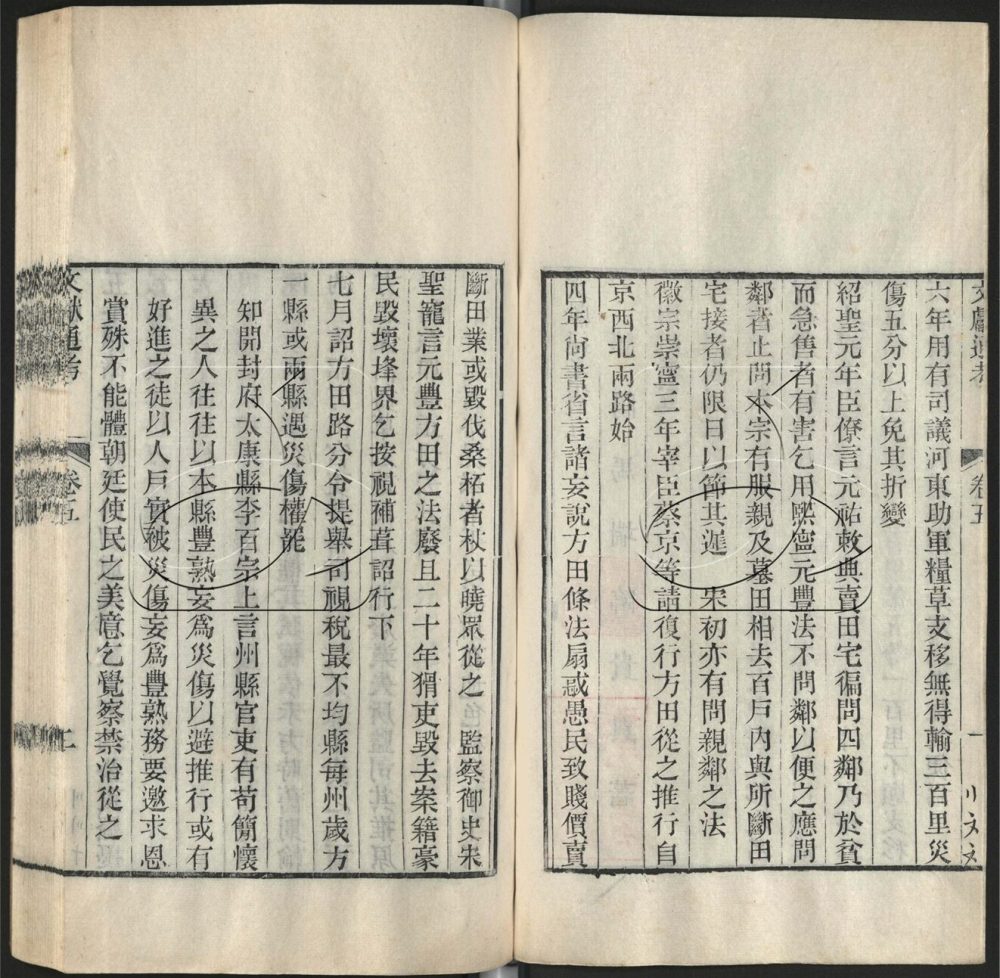 文獻通考 卷五 一
六年用有司議河東助軍糧草支移無得輸三百里災
傷五分以上免其折變
紹聖元年臣僚言元祐敕典賣田宅徧問四鄰乃於貧
而急售者有害乞用熙寧元豐法不問鄰以便之應問
鄰者止問本宗有服親及墓田相去百戶內與所斷田
宅接者仍限日以節其遲 宋初亦有問親鄰之法
徽宗崇寧三年宰臣蔡京等請復行方田從之推行自
京西北兩路始
四年尚書省言諸妄說方田條法扇惑愚民致賤價賣
斷田業或毀伐桑柘者杖以曉眾從之 監察御史朱
聖寵言元豐方田之法廢且二十年猾吏毀去案籍豪
民毀壞埄界乞按視補葺詔行下
七月詔方田路分令提舉司視稅最不均縣每州歲方
一縣或兩縣遇災傷權罷
知開封府太康縣李百宗上言州縣官吏有苟簡懷
異之人往往以本縣豐熟妄爲災傷以避推行或有
好進之徒以人戶實被災傷妄爲豐熟務要邀求恩
賞殊不能體朝廷使民之美意乞覺察禁治從之
文獻通考 卷五 二